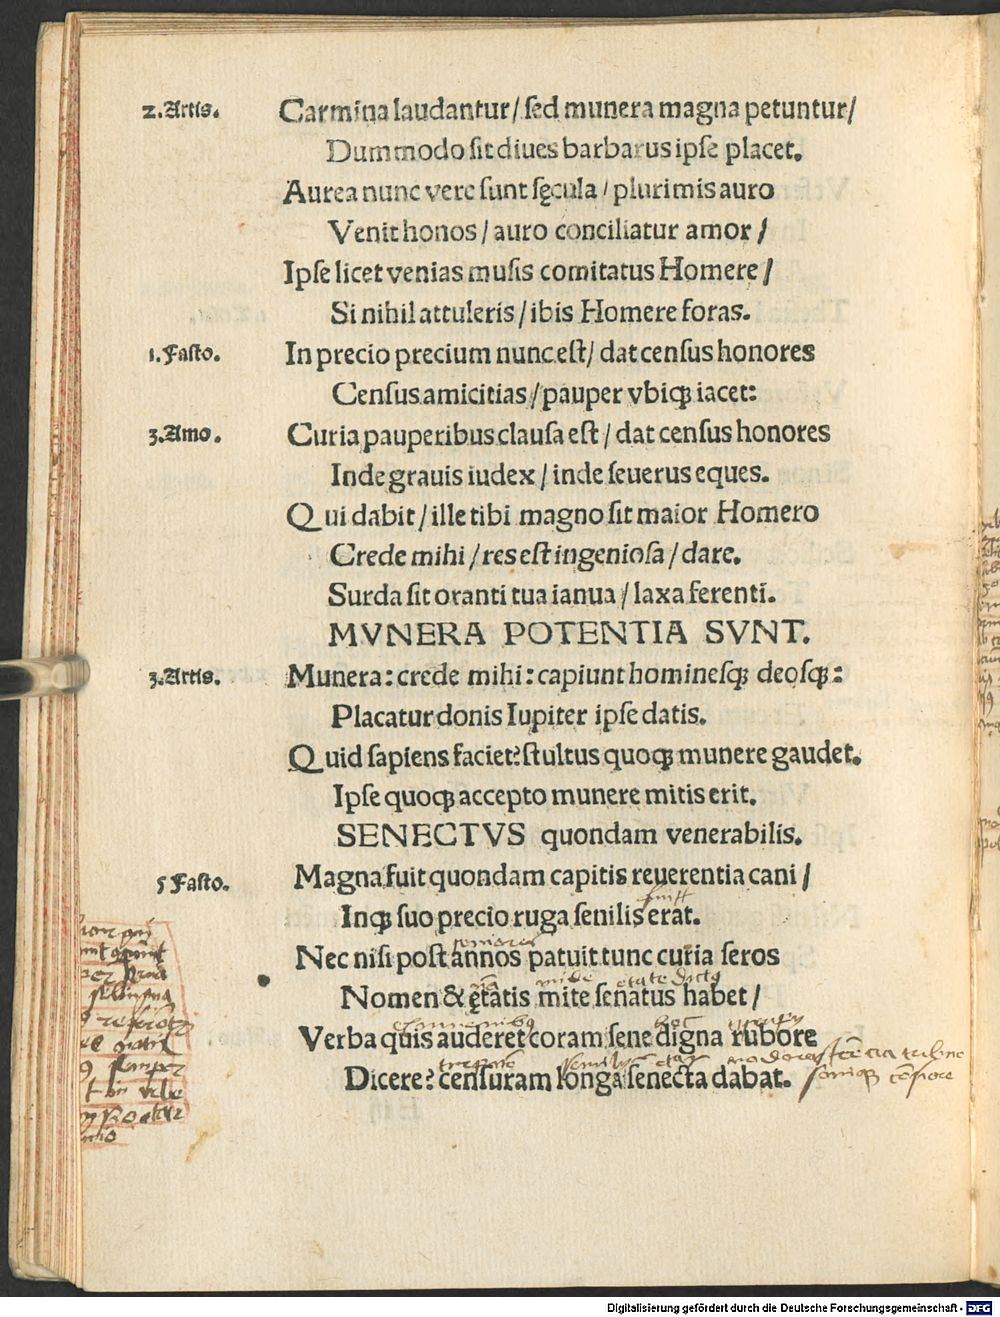 2. Artis. Carmina laudantur / sed munera magna petuntur /
Dummodo sit diues barbarus ipse placet.
Aurea nunc vere sunt sęcula / plurimis auro
Venit honos / auro conciliatur amor /
Ipse licet venias musis comitatus Homere /
Si nihil attuleris / ibis Homere foras.
1. Fasto. In precio precium nunc est / dat census honores
Census amicitias / pauper vbiqꝫ iacet:
3. Amo. Curia pauperibus clausa est / dat census honores
Inde grauis iudex / inde seuerus eques.
Qui dabit / ille tibi magno sit maior Homero
Crede mihi / res est ingeniosa / dare.
Surda sit oranti tua ianua / laxa ferenti.
MVNERA POTENTIA SVNT.
3. Artis. Munera: crede mihi: capiunt hominesqꝫ deosqꝫ:
Placatur donis Iupiter ipse datis.
Quid sapiens faciet? stultus quoqꝫ munere gaudet.
Ipse quoqꝫ accepto munere mitis erit.
SENECTVS quondam venerabilis.
5 Fasto. Magna fuit quondam capitis reuerentia cani /
Inqꝫ suo precio ruga senilis erat.
Nec nisi post annos patuit tunc curia seros
Nomen & ętatis mite senatus habet /
Verba quis auderet coram sene digna rubore
Dicere? censuram longa senecta dabat.
Digitalisierung gefördert durch die Deutsche Forschungsgemeinschaft - DFG